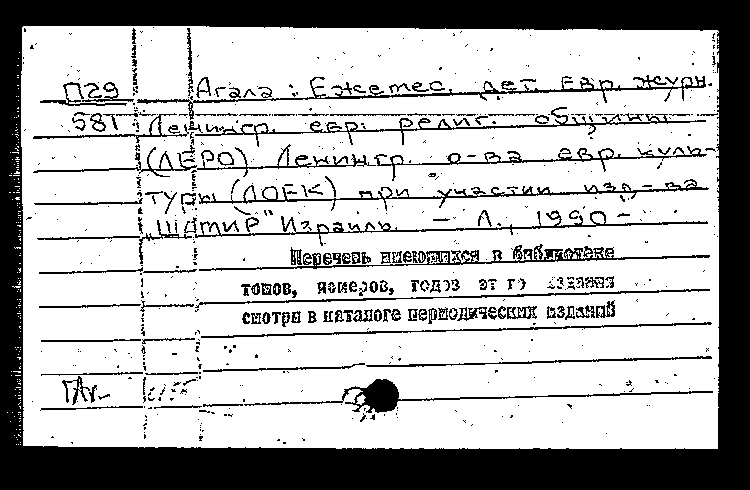 П29 Агала: Ежемес. дет. евр. журн.
581 Ленингр. евр. религ. общины
(ЛЕРО) Ленингр. о-ва евр. куль-
туры (ЛОЕК) при участии изд-ва
„ШАМИР" Израиль. – Л., 1990–
Перечень имеющихся в библиотеке
томов, номеров, годов этого издания
смотри в каталоге периодических изданий